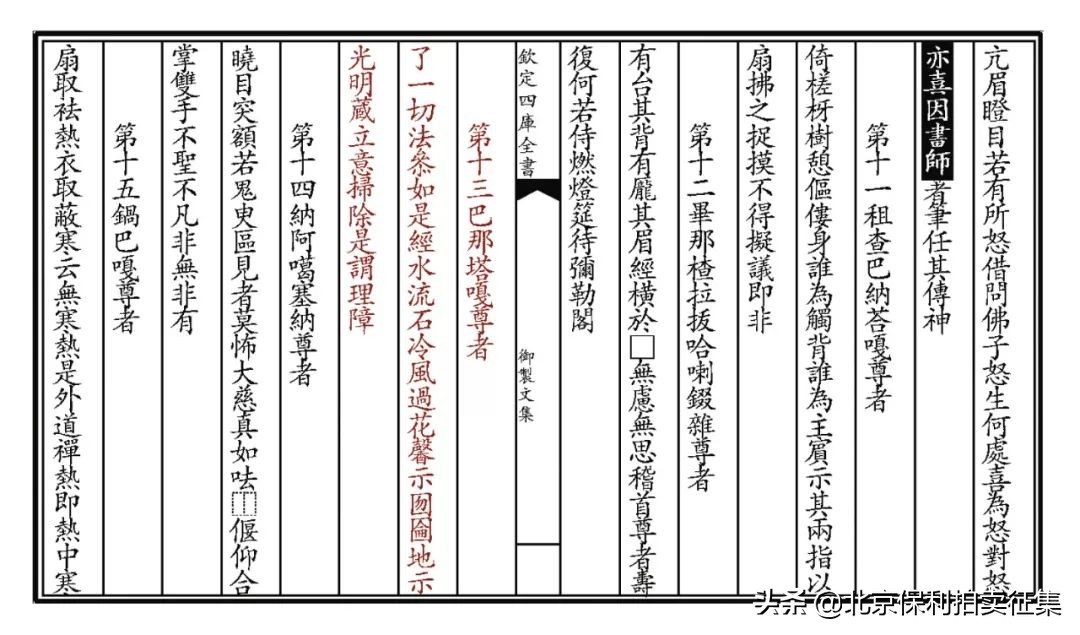 亢眉瞪目若有所怒借問佛子怒生何處喜為怒對怒
亦喜因書師者筆任其傳神
第十一租查巴納荅嘎尊者
倚槎枒樹憩傴僂身誰為觸背誰為主賓示其兩指以
扇拂之捉摸不得擬議即非
第十二畢那楂拉拔哈喇錣雜尊者
有台其背有龐其眉經橫於□無慮無思稽首尊者壽
復何若侍燃燈筵待彌勒閣
欽定四庫全書
御製文集
第十三巴那塔嘎尊者
了一切法叅如是經水流石冷風過花馨示囫圇地示
光明藏立意掃除是謂理障
第十四納阿噶塞納尊者
曉目突額若鬼臾區見者莫怖大慈真如呿偃仰合
掌雙手不聖不凡非無非有
第十五鍋巴嘎尊者
扇取祛熱衣取蔽寒云無寒熱是外道禪熱即熱中寒
头条 @北京保利拍卖征集